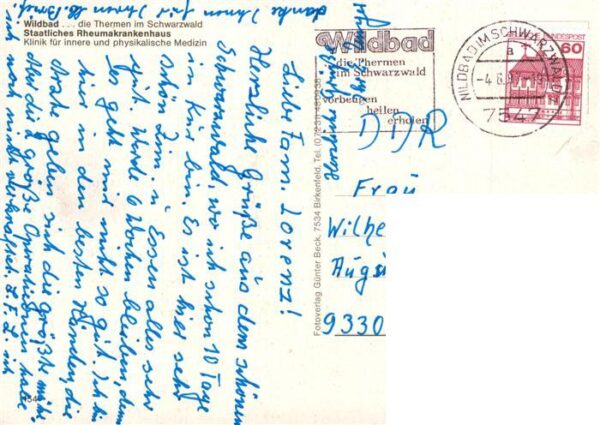 Wildbad ... die Thermen im Schwarzwald
Staatliches Rheumakrankenhaus
Klinik für innere und physikalische Medizin
Liebe Fam. Lorenz!
Herzliche Grüße aus dem schönen
Schwarzwald, wo ich schon 10 Tage
zur Kur bin. Es ist hier sehr
schön Zim. u. Essen alles sehr
gut. Werde 6 Wochen bleiben, denn
es geht mir nicht so gut. Ich bin
hier in den besten Händen, die
Ärzte geben sich die größte Mühe
die 2 große Operationen habe
ich noch nicht verkraftet. Z. F. L. ich
danke Ihnen für Ihren lb. Brief.
Fotoverlag Günter Beck, 7534 Birkenfeld, Tel. (07231)
Wildbad
die Thermen
im Schwarzwald
vorbeugen
heilen
erholen
WILDBAD IM SCHWARZWALD
a
7547
BUNDESPOST
60
DDR
Frau
Wilhe
Augus
9330